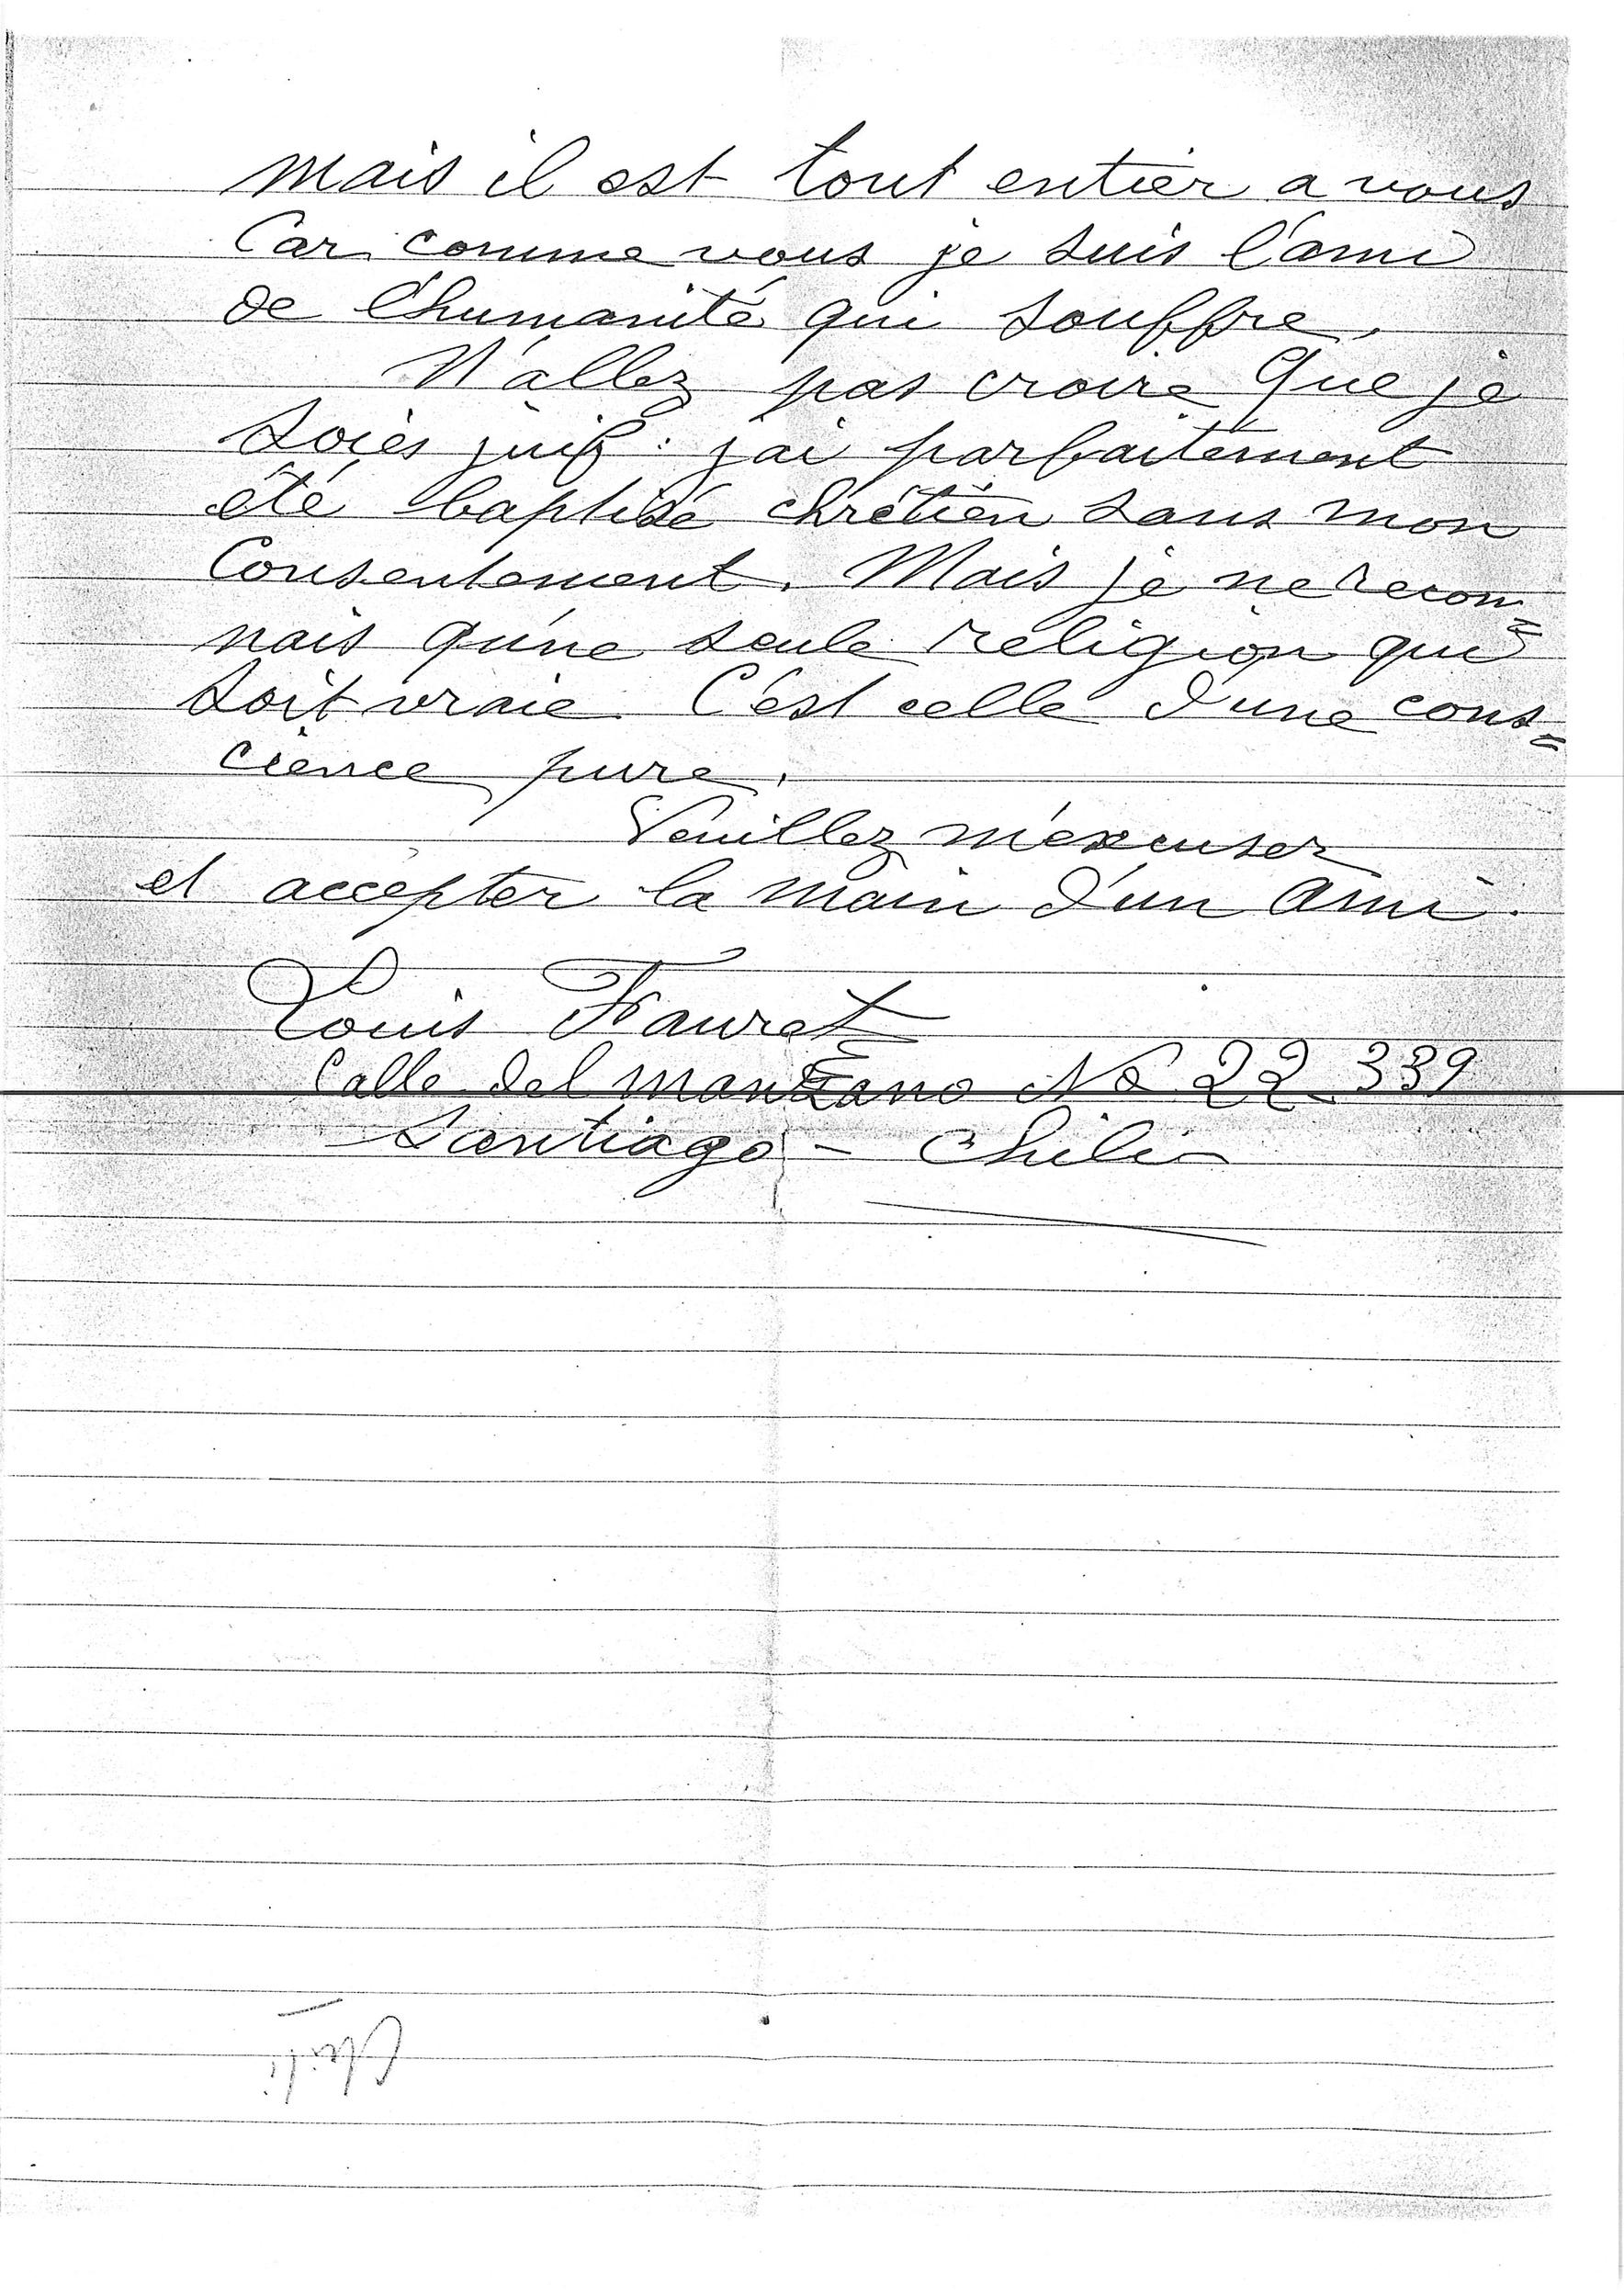 mais il est tout entier a vous
Car comme vous je suis l'ami
de l'humanité qui souffre.
N'allez pas croire que je
soies juif : j'ai parfaitement
été baptisé chrétien sans mon
Consentement. Mais je ne recon=
nais qu'une seule religion qui
soit vraie. C'est celle d'une cons=
cience pure.
Veuillez m'excuser
et accepter la main d'un ami.
Louis Fauret
Calle del manzano No 22 339
Santiago - Chili
Chili